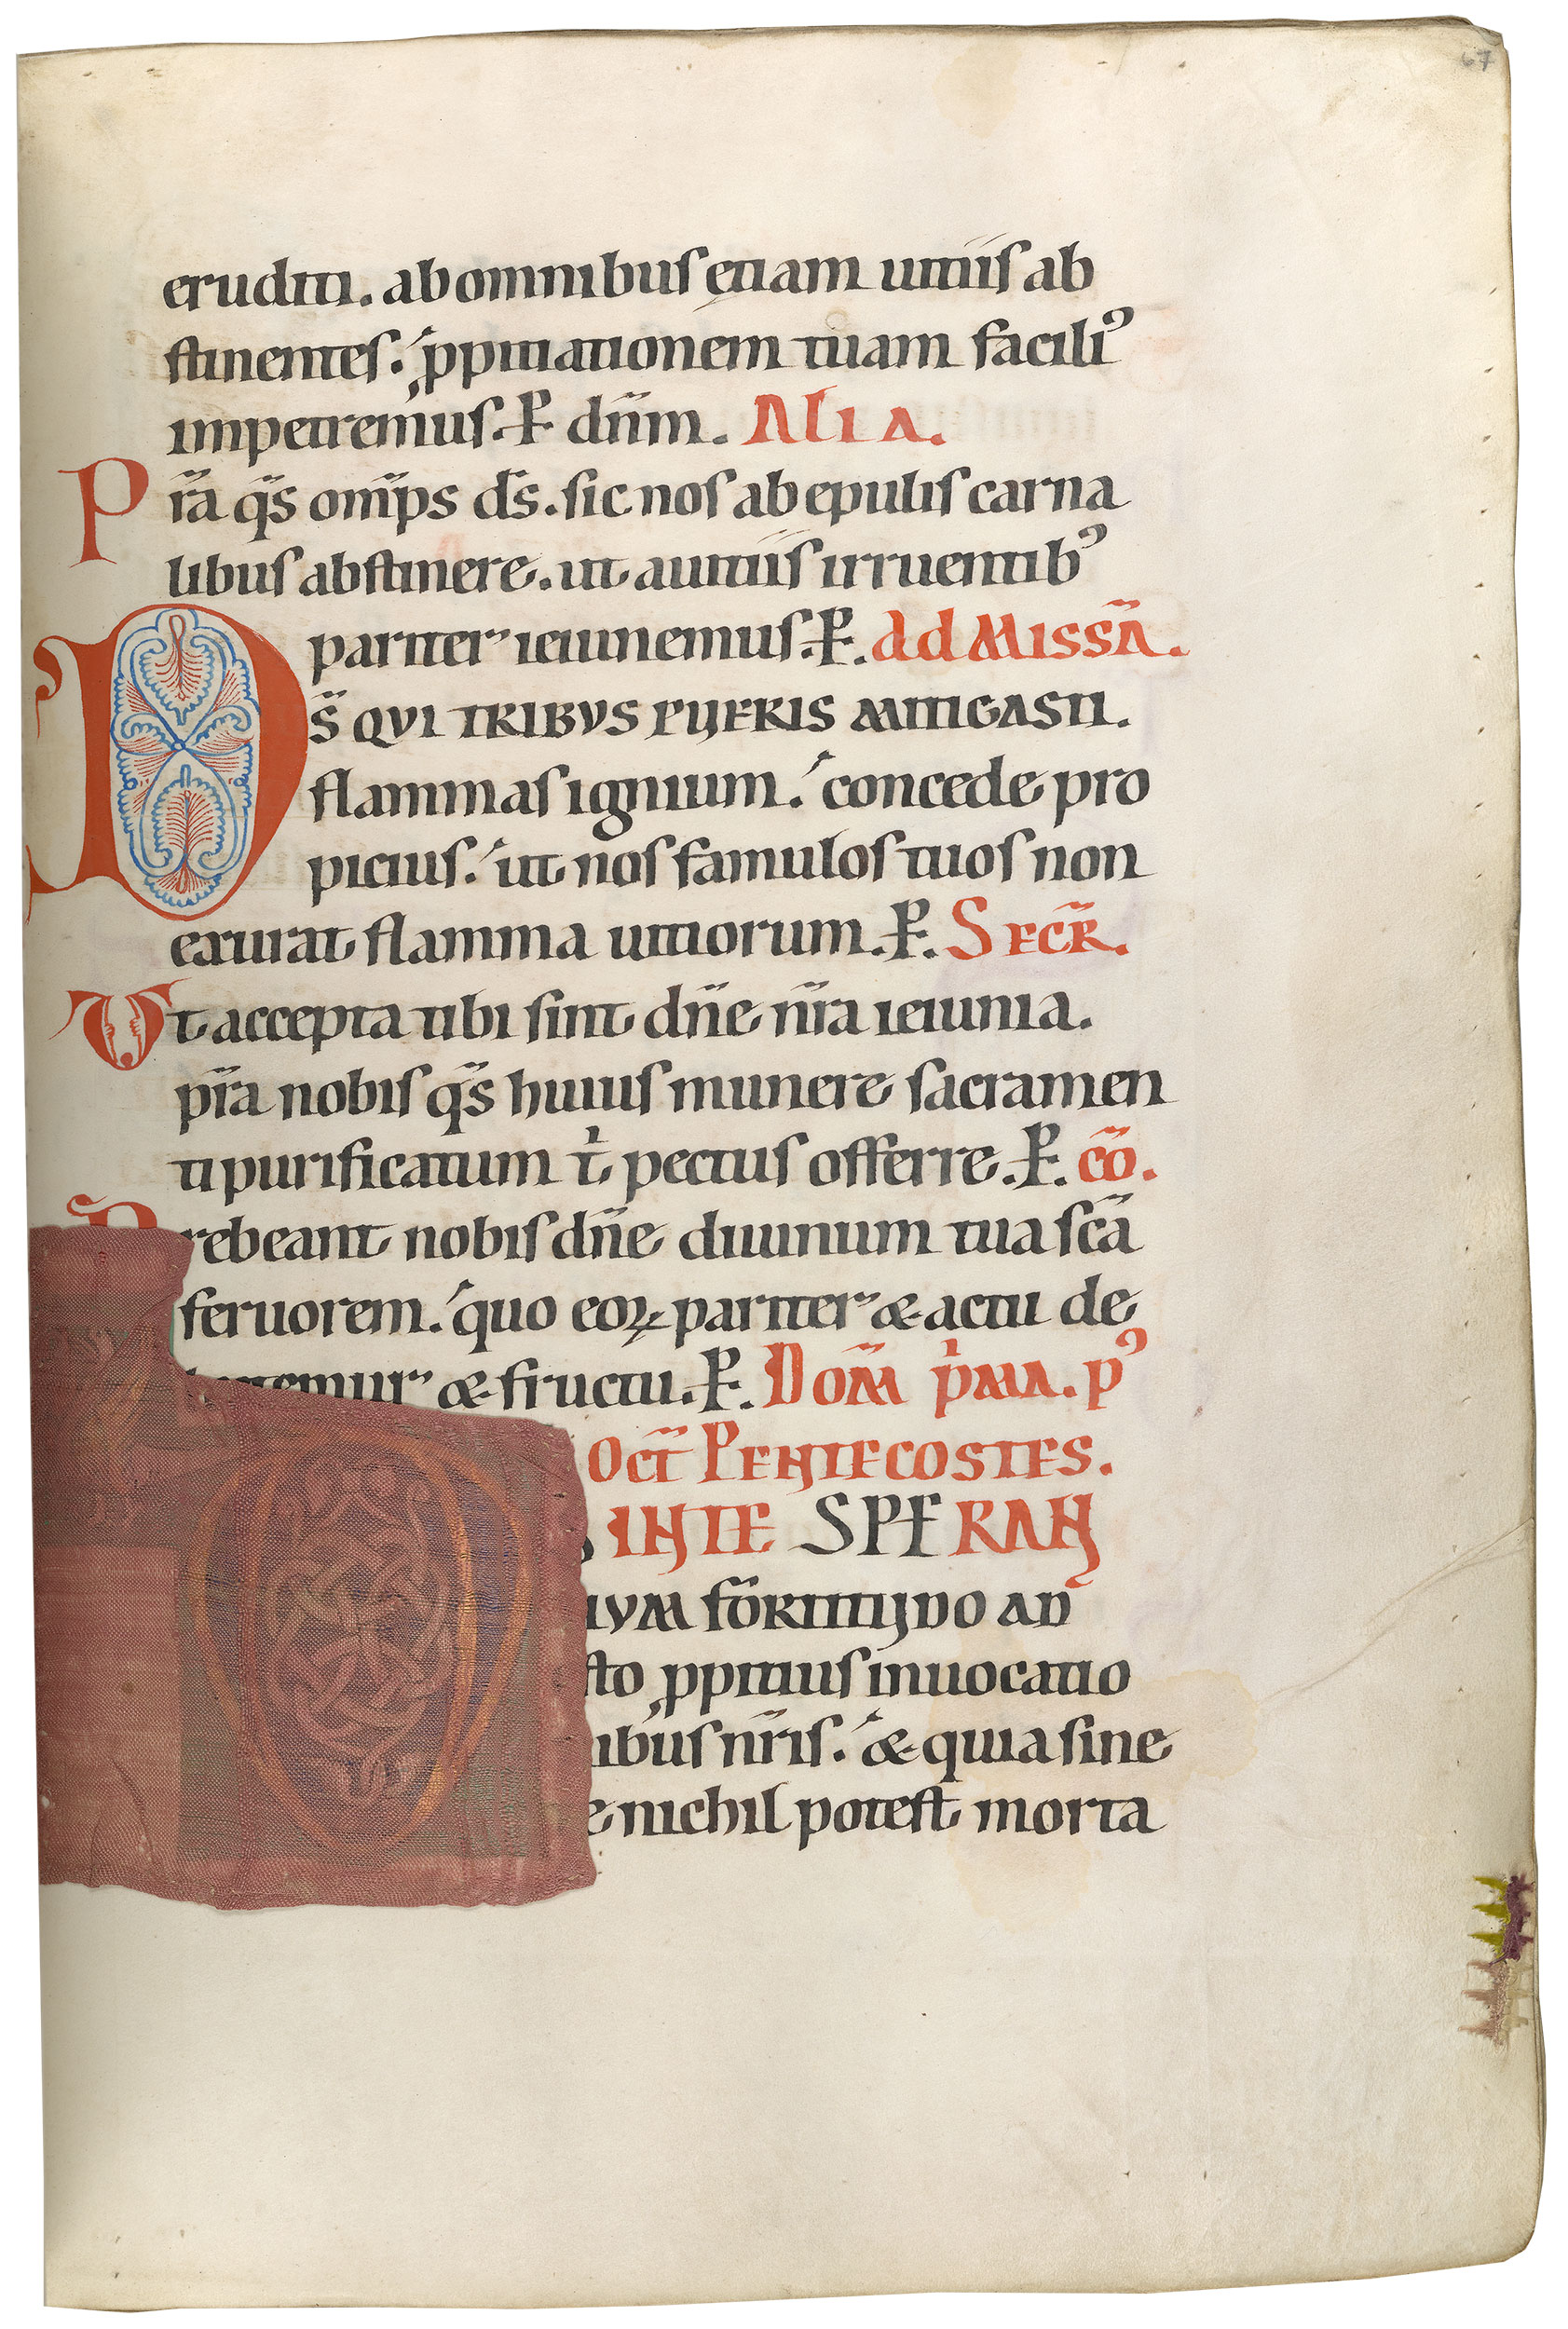 67
eruditi. ab omnibus etiam uitiis ab
stinentes. ꝓpitiationem tuam facili᾽
impetremus. P̶ dn̄m. ALIA.
P r̄a q̄s om̄ps d̄s. sic nos ab epulis carna
libus abstinere. ut a uitiis irruentib᾽
pariter ieiunemus. P̶. Ad Missā.
D s̄ QVI TRIBVS PUERIS MITIGASTI.
flammas ignium. concede pro
picius. ut nos famulos tuos non
exurat flamma uitiorum. P̶. SECR̄.
Vt accepta tibi sint dn̄e nr̄a ieiunia.
pr̄a nobis q̄s huius munere sacramen
ti purificatum t̍ pectus offerre. P̶. cō.
Prebeant nobis dn̄e diuinum tua sc̄a
feruorem. quo eoꝝ pariter & actu de
lectemur & fructu. P̶. DOM̄ p̍MA. p᾽
OCT̄ PENTECOSTES.
IN TE SPERAN
IVM FŌRTITUDO AD
sto ꝓpitius inuocatio
nibus nr̄is. & quia sine
e nichil potest morta